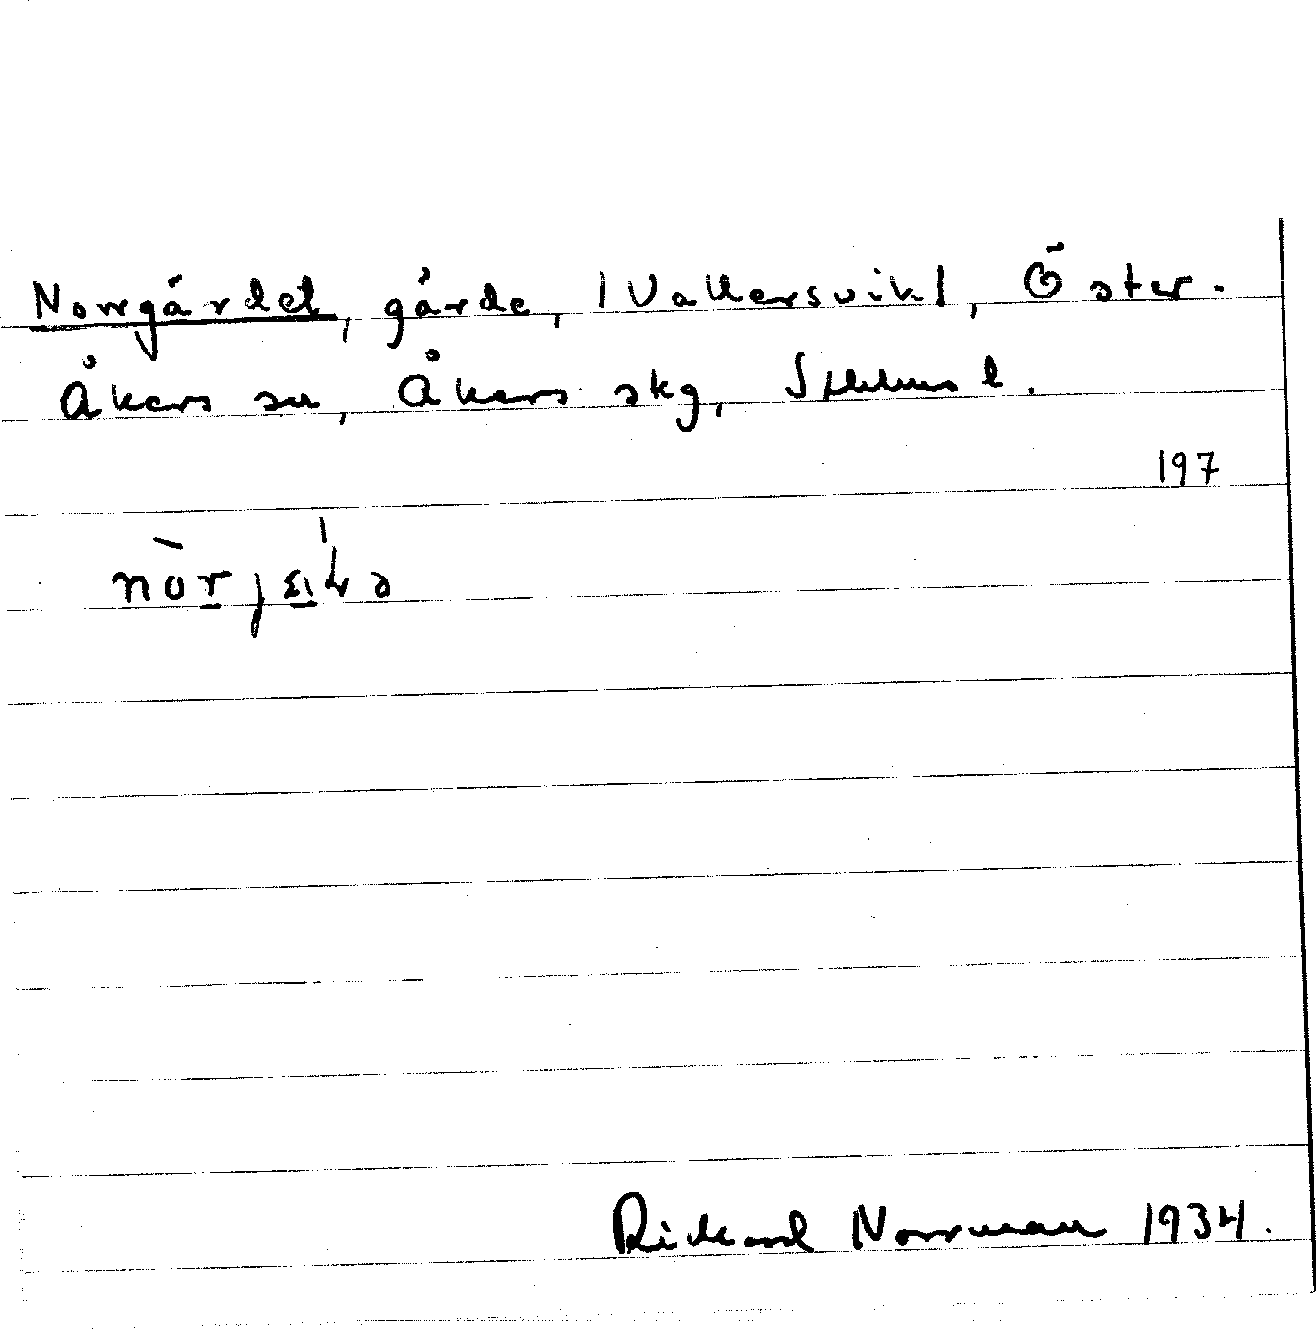 Norrgärdet, gärde, |Vallersvik|, Öster-
Åkers sn, Åkers skg, Sthlms l.
197
Rickard Norrman 1934.